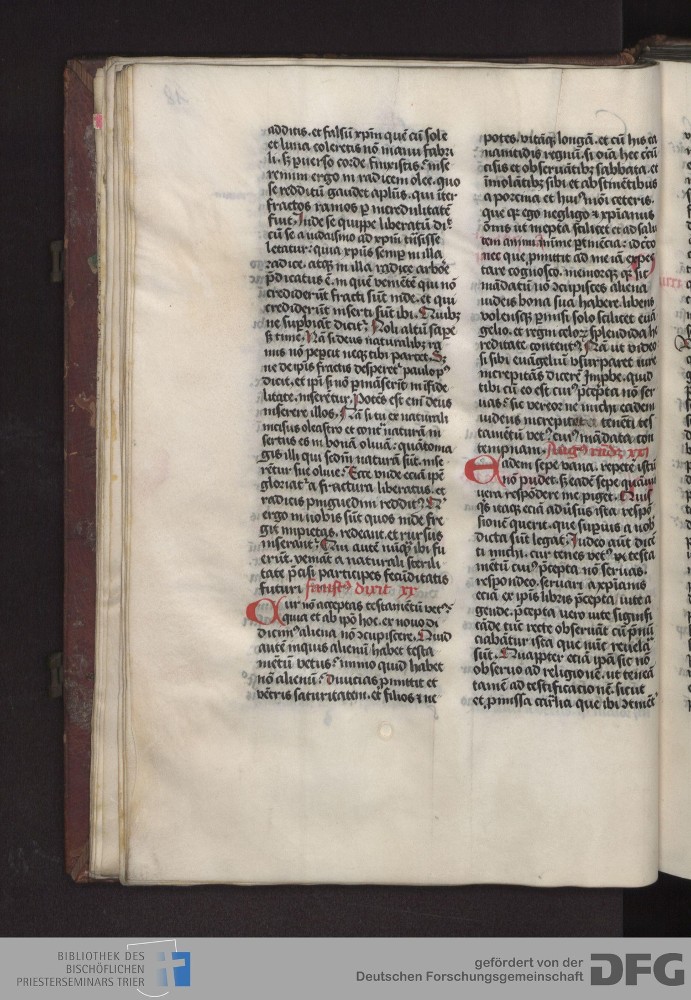 additis. et falsū xp̄m quē cū sole
et luna coleretis nō manu fabri
li. sꝫ puerso corde finxistis. Inse
remini ergo in radicem olee. quo
se redditū gaudet apl̄us. qui īter
fractos ramos ꝑ incredulitatē
fuit. Inde se quippe liberatū di
cū se a iudaismo ad xp̄m trāsisse
letatur: quia xp̄us semꝑ in illa
radice. atqꝫ in illa radice arbore
p̄dicatus ē. in quē venientē qui nō
crediderūt fracti sūt inde. et qui
crediderūt inserti sūt ibi. Quibꝫ
ne supbiāt dicit. Noli altū sape
sꝫ time. Nā si deus naturalibꝫ ra
mis nō peꝑcit neqꝫ tibi parcet. Et
ne de ip̄is fractis despereť paulo pꝰ
dicit. et ip̄i si nō ꝑmāserīt in īfide
litate. inserētur. Potēs est enī deus
inserere illos. Nā si tu ex naturali
incisus oleastro et contª naturā in
sertus es in bonā oliuā: quātoma
gis illi qui scd̄m naturā sūt. inse
rētur sue oliue. Ecce vnde eciā ip̄e
gloriatˀ a fractura liberatus. et
radicis pinguedini redditꝰ. Et
ergo in nobis sūt quos inde fre
git impietas. redeant. et rursus
inserant. Qui autē nūqꝫ ibi fu
erūt. veniāt a naturali sterili
tate p̄cisi participes fecūditatis
futuri faustꝰ dixit xx
Cur nō acceptas testamētū vetꝰ
quia et ab ip̄o hoc. et nouo di
dicimꝰ aliena nō ꝯcupiscere. Quid
autē inquis alienū habet testa
mētū vetus: immo quid habet
nō alienū: diuicias ꝓmittit et
vētris saturitatem. et filios ⁊ ne
potes. vitāqꝫ longā. et cū his ca
nanitidis regnū. sꝫ oīa hec circū
cisis et obseruātibꝫ sabbata. et
īmolātibꝫ sibi et abstinētibus
a porcina et huiꝰmōi ceteris.
que qꝫ ego negligo ⁊ xp̄ianus
ōmis ut inepta scilicet et ad salu
tem animi nūme ꝑtinēcia: idcirco
nec que ꝓmittit ad me iā expec
tare cognosco. memorqꝫ qꝫ sic
mādatū nō ꝯcupisces aliena
iudeis bona sua habere. libens
volensqꝫ ꝑmisi solo scilicet euā
gelio. et regni celoꝝ splendida he
reditate contentꝰ. Nā ut iudeo
si sibi euāgeliū vsurparet iure
increpitās dicerē Improbe. quid
tibi cū eo est cuiꝰ p̄cepta nō ser
uas: sic vereor ne michi eadem
iudeus increpitet. si tenētí tes
tamētū vetꝰ. cuiꝰ mādata con
tempnam. Augꝰ rn̄dꝫ xxi
Eadem sepe vana. repete istū
nō pudet. sꝫ eadē sepe quāuis
uera respōdere me piget. Quis
qs itaqꝫ eciā adūsus ista respō
sionē querit. que supius a nob
dicta sūt legat. Iudeo autē dicē
ti michi. cur tenes vetꝰ testa
mētū cuiꝰ p̄cepta nō seruas.
respondeo. seruari a xp̄ianis
eciā ex ip̄is libris p̄cepta. vite a
gende. p̄cepta vero vite signifi
cāde tūc recte obseruāt cū p̄nū
ciabātur ista que nūc reuela
sūt. Quapp̄ter eciā ip̄a sic nō
obseruo ad religionē. ut teneā
tamē ad testificationē. sicut
et ꝓmissa carnalia que ibi ꝯtinēť
BIBLIOTHEK DES
BISCHÖFLICHEN
PRIESTERSEMINARS TRIER
gefördert von der
Deutschen Forschungsgemeinschaft
DFG